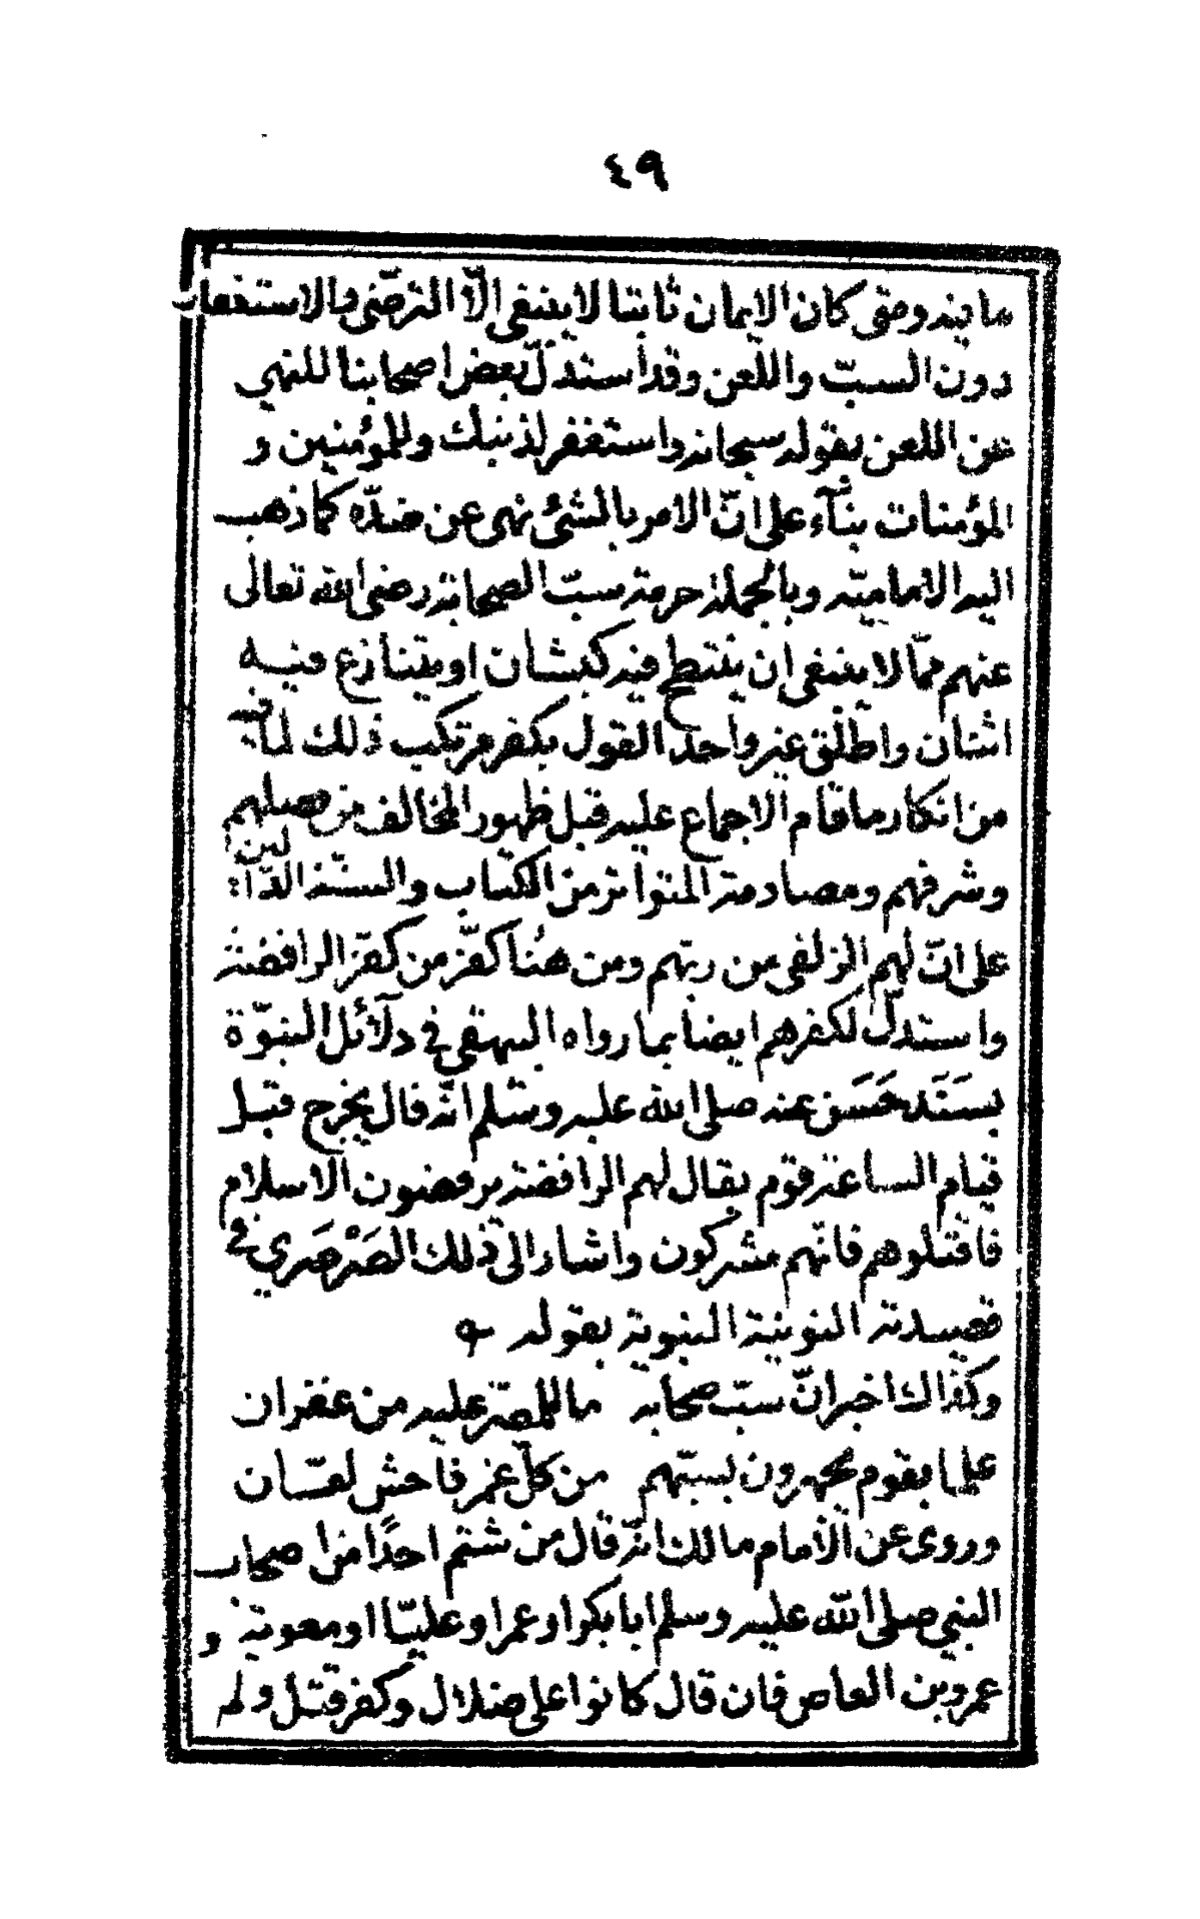 ٤٩
ما فيه ومتى كان الايمان ثابتا لا ينبغى الّا الترضّى والاستغفار
دون السبّ واللعن وقد استدلّ بعض اصحابنا للنهى
عن اللعن بقوله سبحانه واستغفر لذنبك وللمؤمنين و
المؤمنات بنآء على انّ الامر بالشئ نهى عن ضدّه كما ذهب
اليه الاماميّة وبالجملة حرمة سبّ الصحابة رضى الله تعالى
عنهم ممّا لا ينبغى ان ينتطح فيه كبشان او يتنازع فيه
اثنان واطلق غير واحد القول بكفر مرتكب ذلك لما فيه
من انكار ما قام الاجماع عليه قبل ظهور المخالف من فضلهم
وشرفهم ومصادمة المتواتر من الكتاب والسنّة الدّالين
على انّ لهم الزلفى من ربّهم ومن هُنا كفّر من كفّر الرافضة
واستدلّ لكفرهم ايضا بما رواه البيهقى في دلآئل النبوّة
بسَنَد حَسَن عنه صلى الله عليه وسلم انّه قال يخرج قبل
قيام الساعة قوم يقال لهم الرافضة يرفضون الاسلام
فاقتلوهم فانّهم مشركون واشار الى ذلك الصَرْصَري في
قصيدته النونية النبوية بقوله
وكذاك اخبر انّ سبّ صحابه ما للمصرّ عليه من غفران
علما بقوم يجهرون بسبّهم من كلّ غمر فاحش لعّان
وروى عن الامام مالك انّه قال من شتم احدًا من اصحاب
النبى صلى الله عليه وسلم ابا بكر او عمر او عليّا او معوية و
عمرو بن العاص فان قال كانوا على ضلال وكفر قتل وله